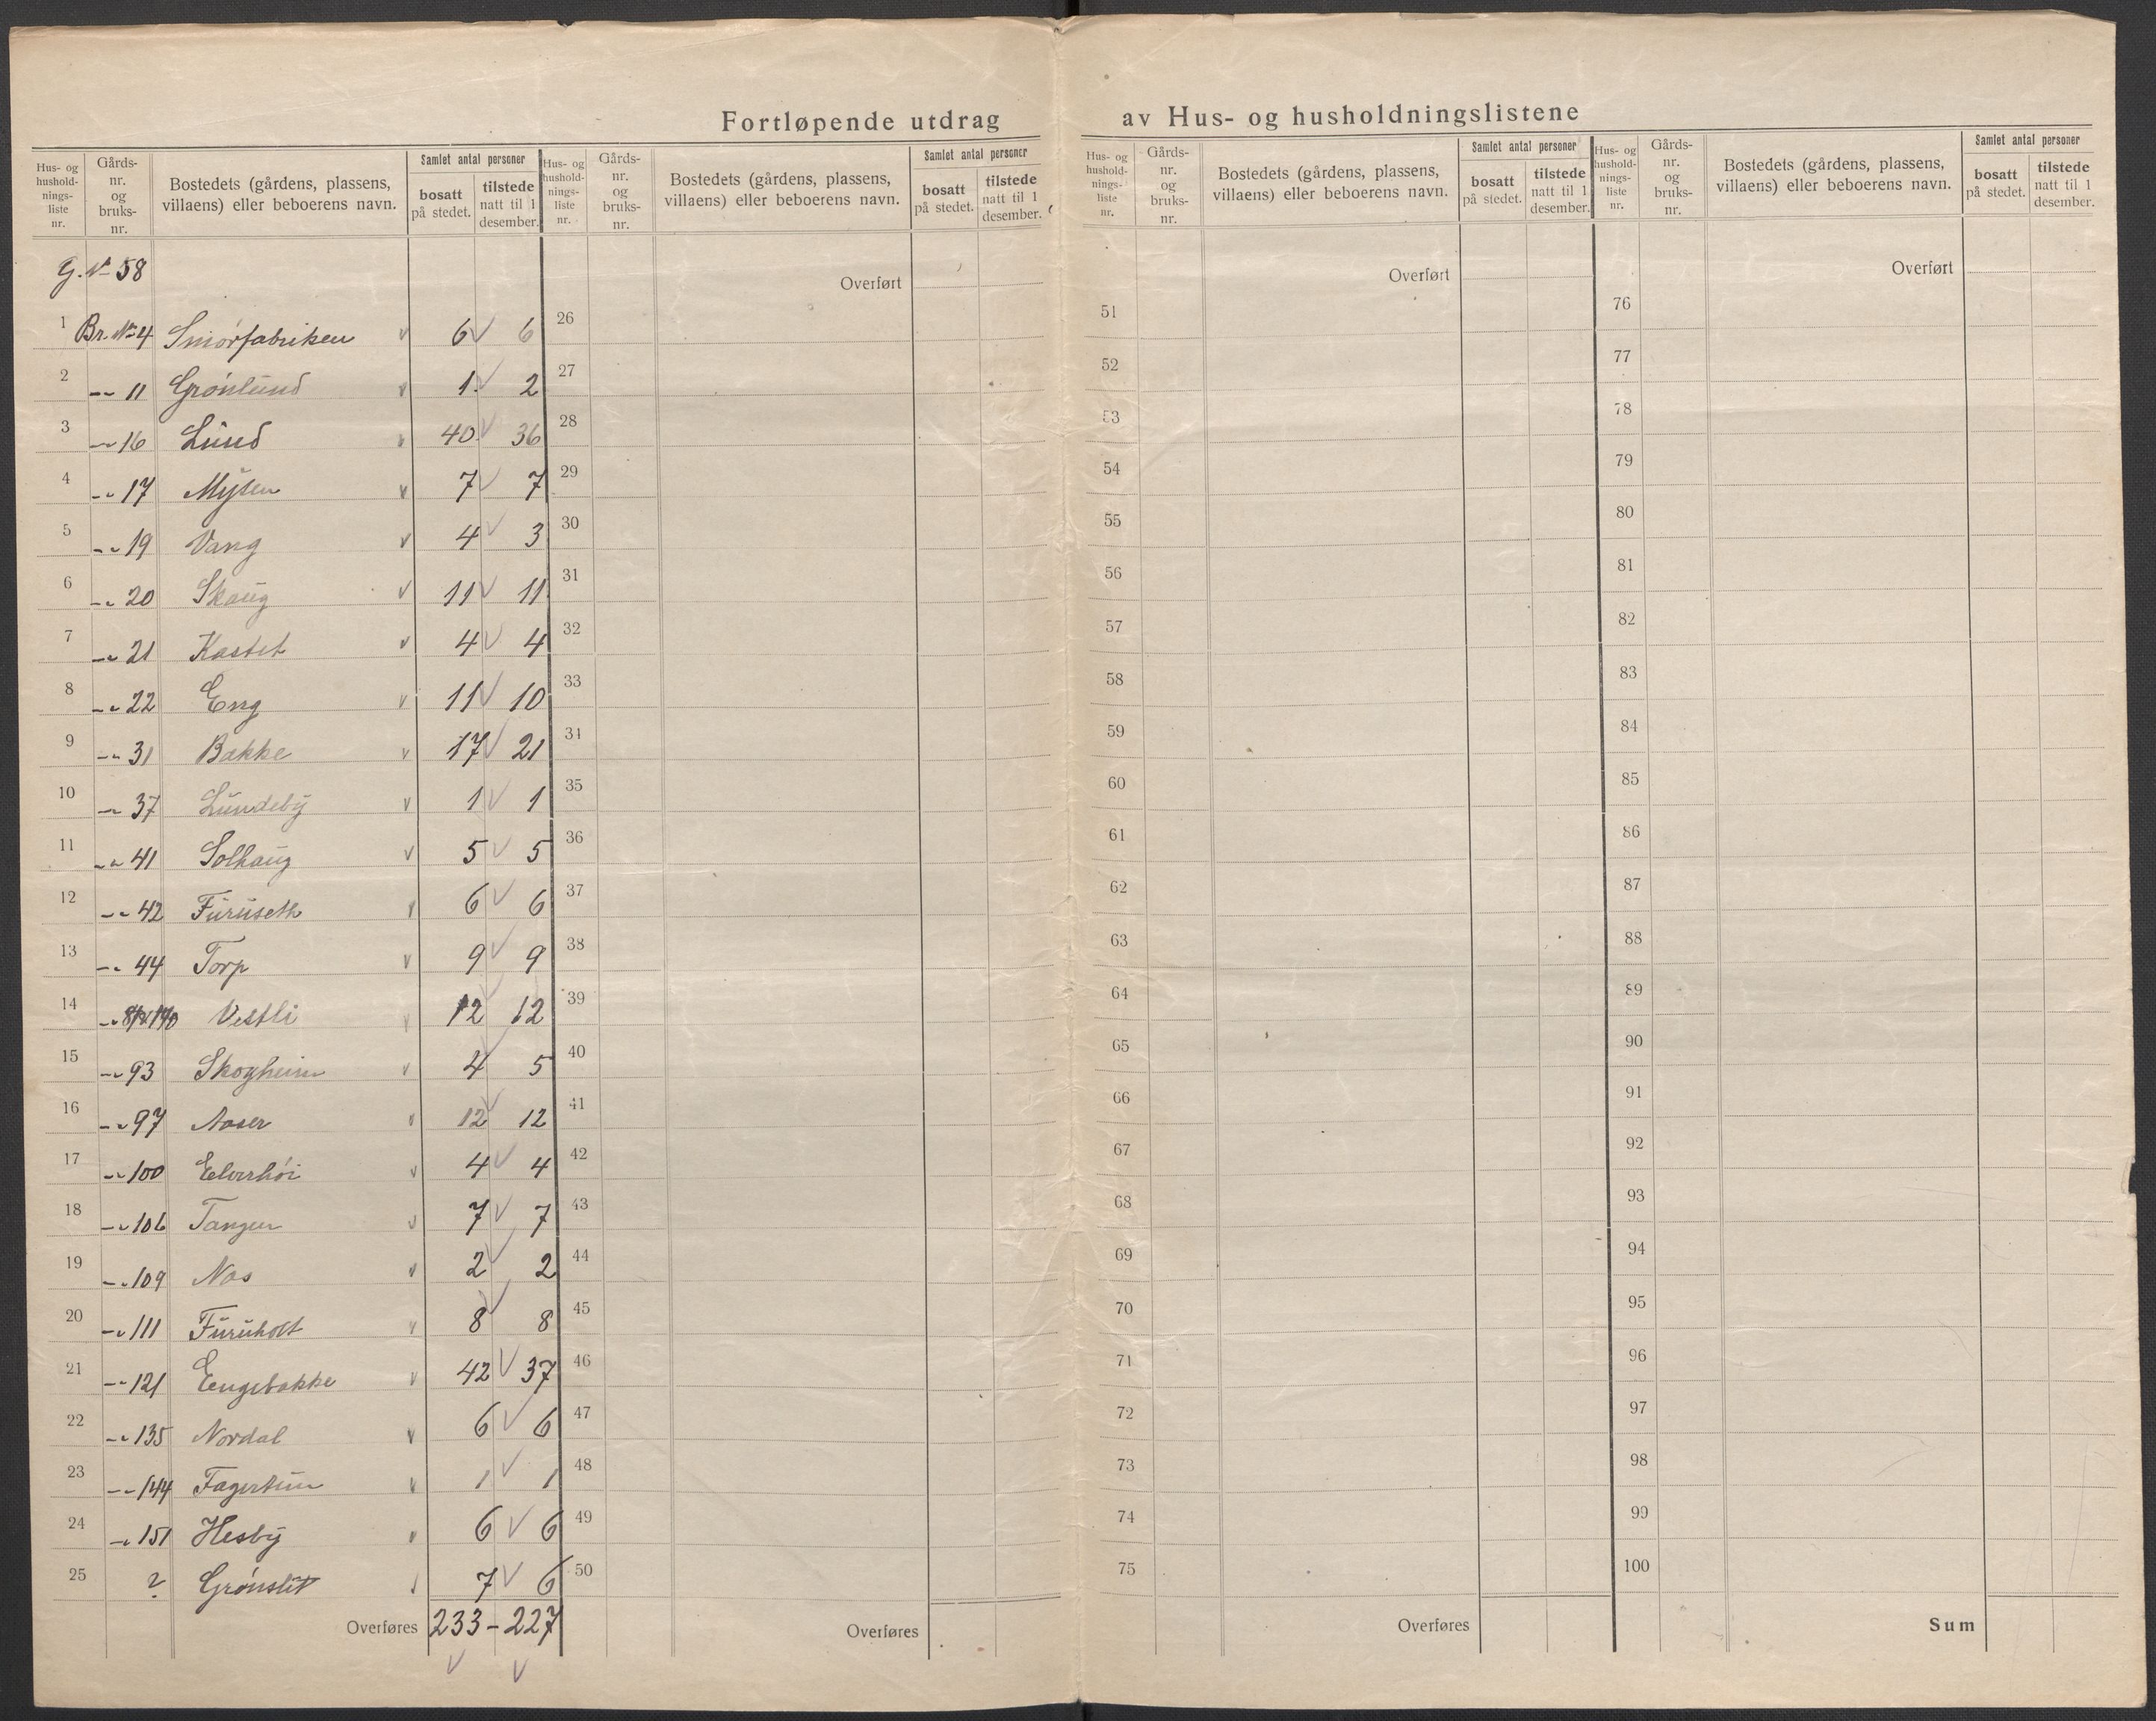 Fortløpende utdrag av Hus- og husholdningslistene
Hus- og husholdnings-liste nr. Gårds-nr. og bruks-nr. Bostedets (gårdens, plassens, villaens) eller beboerens navn. Samlet antal personer bosatt på stedet. tilstede natt til 1 desember.
Hus- og husholdnings-liste nr. Gårds-nr. og bruks-nr. Bostedets (gårdens, plassens, villaens) eller beboerens navn. Samlet antal personer bosatt på stedet. tilstede natt til 1 desember.
Hus- og husholdnings-liste nr. Gårds-nr. og bruks-nr. Bostedets (gårdens, plassens, villaens) eller beboerens navn. Samlet antal personer bosatt på stedet. tilstede natt til 1 desember.
Hus- og husholdnings-liste nr. Gårds-nr. og bruks-nr. Bostedets (gårdens, plassens, villaens) eller beboerens navn. Samlet antal personer bosatt på stedet. tilstede natt til 1 desember.
G. № 58 Overført Overført Overført
1 Br. № 4 Smørfabriken v 6 v 6 26 51 76
2 -"- 11 Grønlund v 1 v 2 27 52 77
3 -"- 16 Lund v 40 v 36 28 53 78
4 -"- 17 Mysen v 7 v 7 29 54 79
5 -"- 19 Vang v 4 v 3 30 55 80
6 -"- 20 Skaug v 11 v 11 31 56 81
7 -"- 21 Kastet v 4 v 4 32 57 82
8 -"- 22 Eng v 11 v 10 33 58 83
9 -"- 31 Bakke v 17 v 21 34 59 84
10 -"- 37 Lundeby v 1 v 1 35 60 85
11 -"- 41 Solhaug v 5 v 5 36 61 86
12 -"- 42 Furuseth v 6 v 6 37 62 87
13 -"- 44 Torp v 9 v 9 38 63 88
14 -"- Vestli v 12 v 12 39 64 89
15 -"- 93 Skogheim v 4 v 5 40 65 90
16 -"- 97 Aaser v 12 v 12 41 66 91
17 -"- 100 Elverhøi v 4 v 4 42 67 92
18 -"- 106 Tangen v 7 v 7 43 68 93
19 -"- 109 Nos v 2 v 2 44 69 94
20 -"- 111 Furuholt v 8 v 8 45 70 95
21 -"- 121 Engebakke v 42 v 37 46 71 96
22 -"- 135 Nordal v 6 v 6 47 72 97
23 -"- 144 Fagertun v 1 v 1 48 73 98
24 -"- 151 Hesby v 6 v 6 49 74 99
25 ? Grønslit v 7 v 6 50 75 100
Overføres 233 - 227 Overføres Overføres Sum
v v